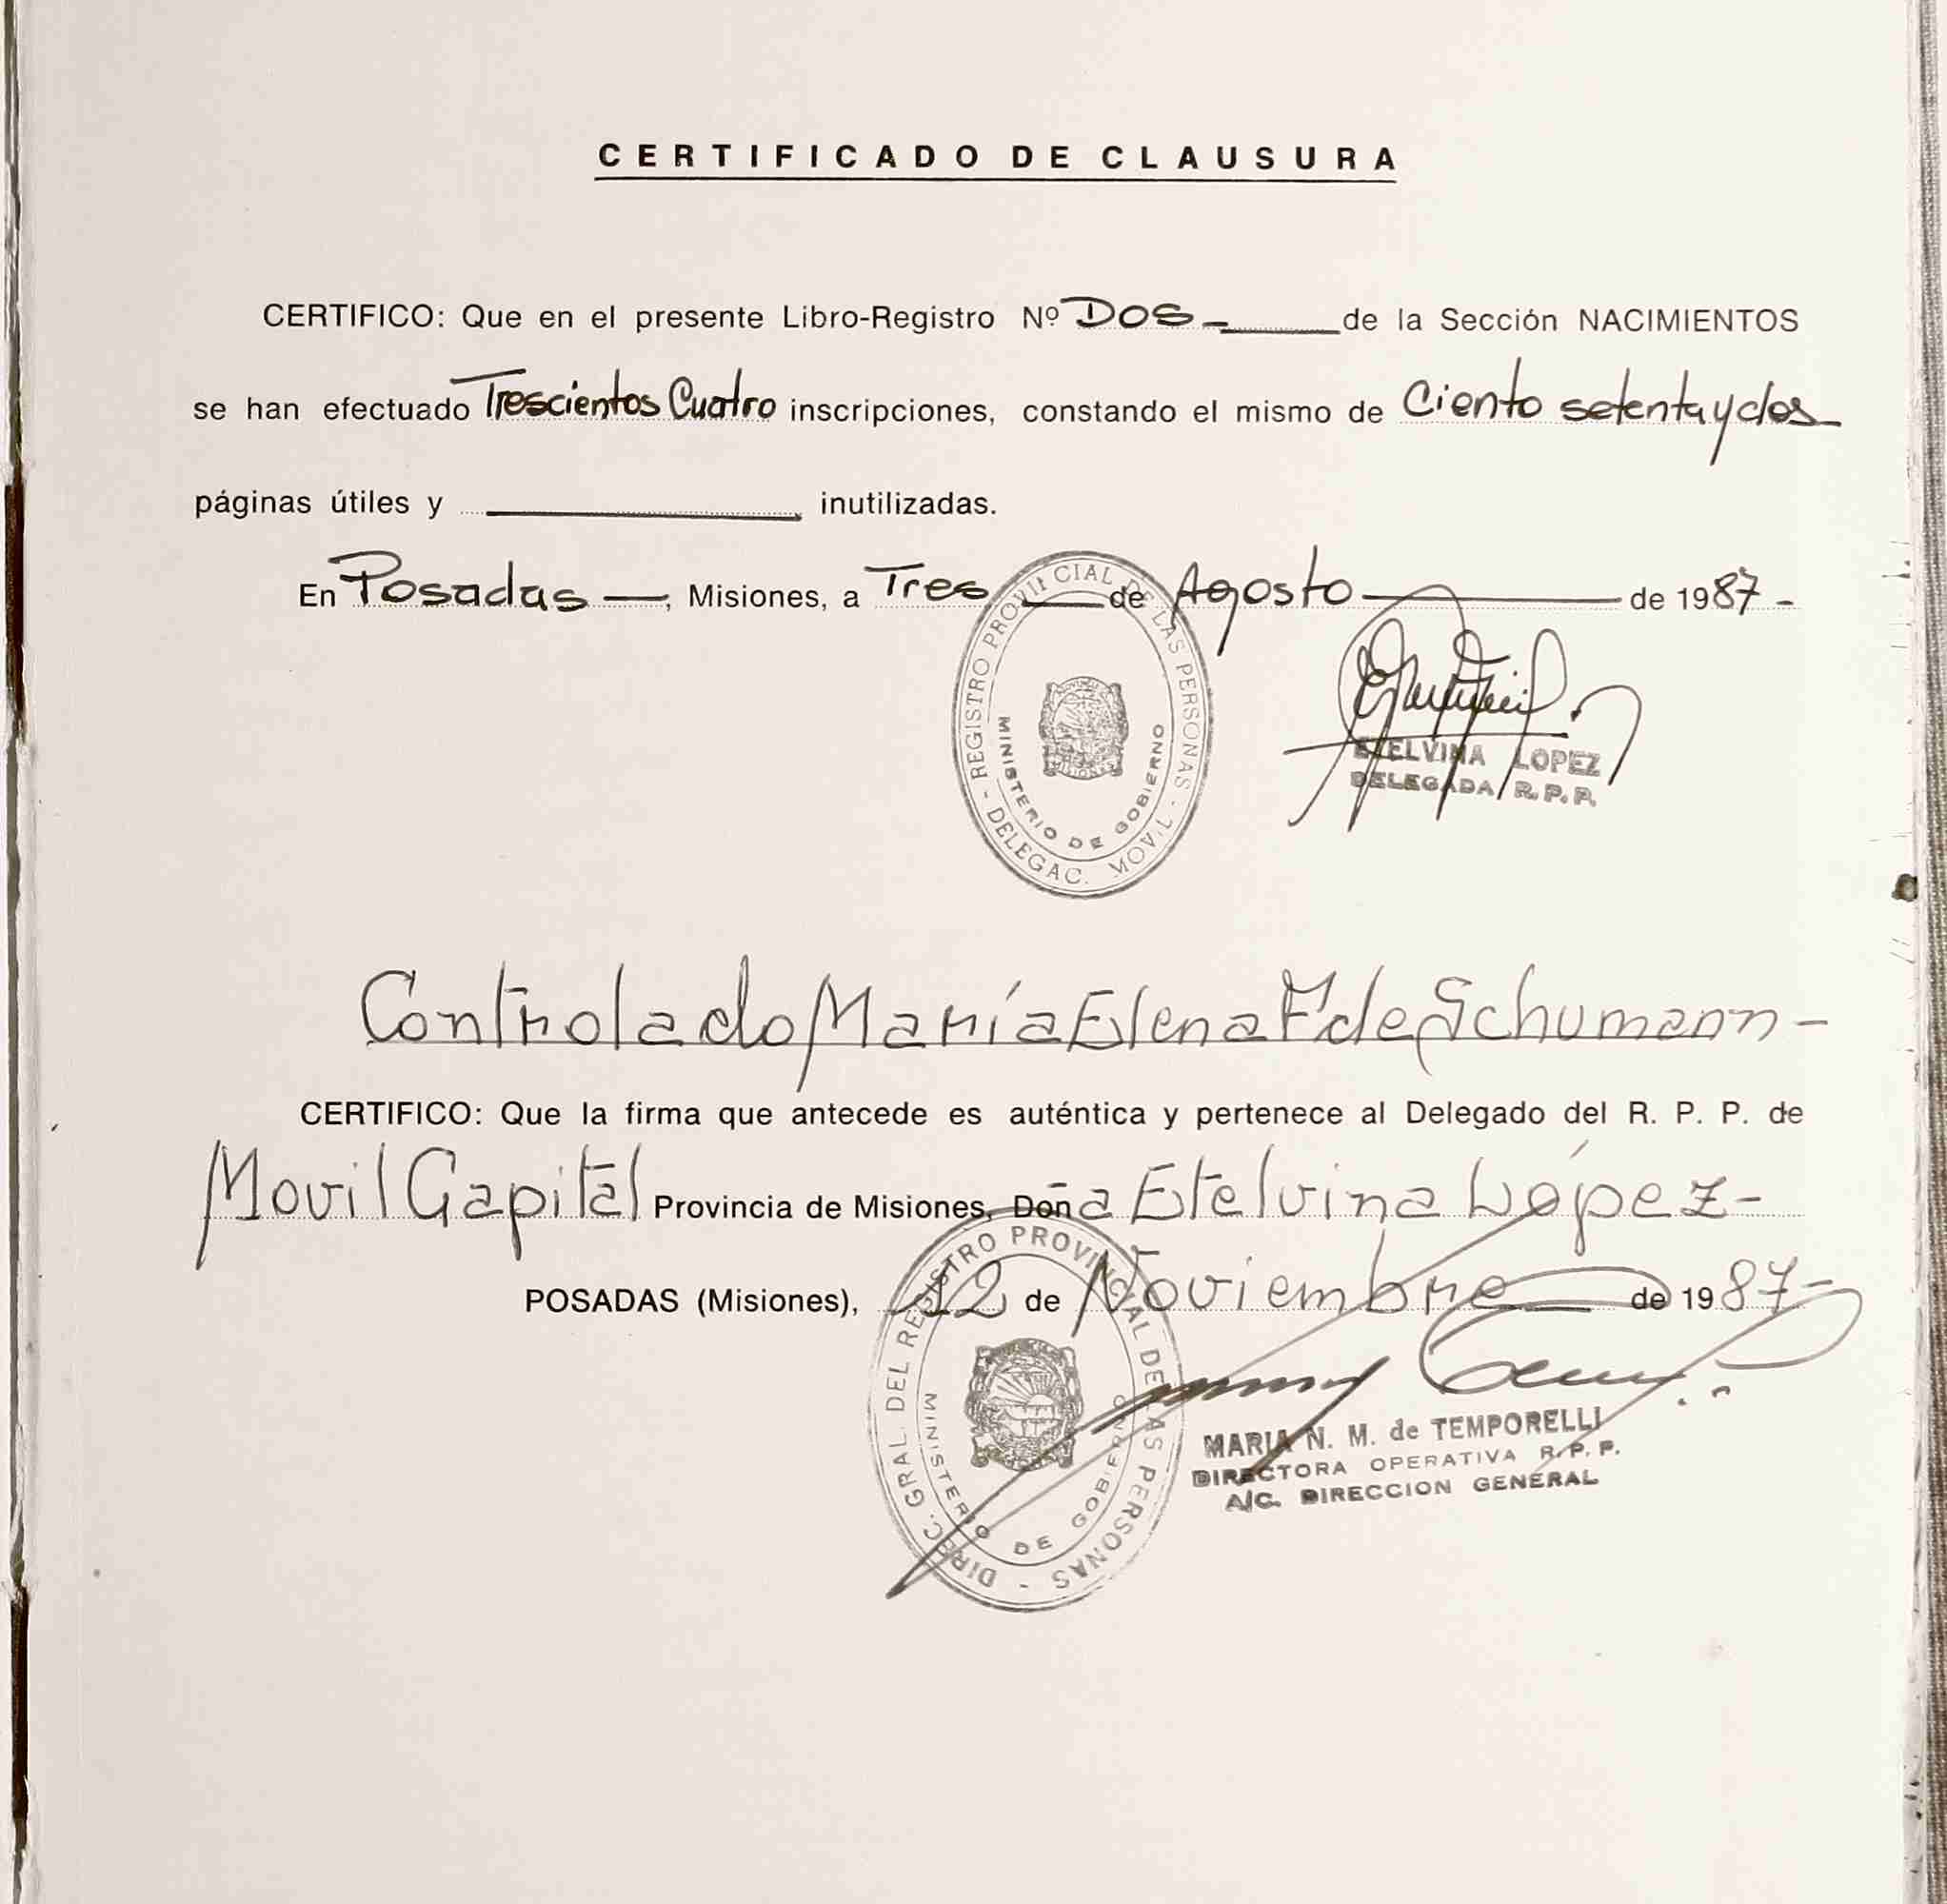 CERTIFICADO DE CLAUSURA
CERTIFICO: Que en el presente Libro-Registro Nº Dos - de la Sección NACIMIENTOS
se han efectuado Trescientos Cuatro inscripciones, constando el mismo de Ciento setenta y dos
páginas útiles y inutilizadas.
En Posadas —, Misiones, a Tres — de Agosto — de 1987 -
REGISTRO PROVINCIAL DE LAS PERSONAS - DELEGAC. MOVIL -
MINISTERIO DE GOBIERNO
ETELVINA LOPEZ
DELEGADA R. P. P.
Controlado María Elena F de Schumann -
CERTIFICO: Que la firma que antecede es auténtica y pertenece al Delegado del R. P. P. de
Movil Capital Provincia de Misiones, Doña Etelvina López -
POSADAS (Misiones), 12 de Noviembre — de 1987 -
DIREC. GRAL. DEL REGISTRO PROVINCIAL DE LAS PERSONAS -
MINISTERIO DE GOBIERNO
MARIA N. M. de TEMPORELLI
DIRECTORA OPERATIVA R. P. P.
A/C. DIRECCION GENERAL